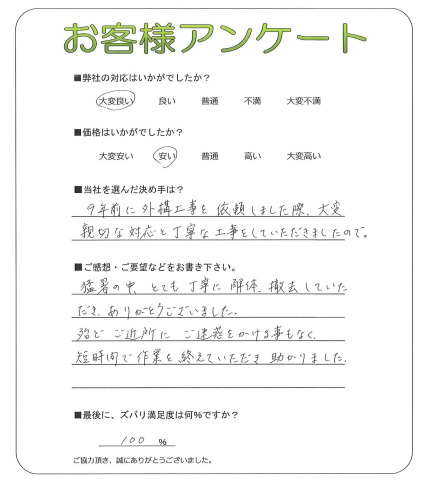 お客様アンケート
■弊社の対応はいかがでしたか？
大変良い 良い 普通 不満 大変不満
■価格はいかがでしたか？
大変安い 安い 普通 高い 大変高い
■当社を選んだ決め手は？
9年前に外構工事を依頼しました際、大変
親切な対応と丁寧な工事をしていただきましたので。
■ご感想・ご要望などをお書き下さい。
猛暑の中、とても丁寧に解体、撤去していた
だき、ありがとうございました。
殆どご近所にご迷惑をかける事もなく、
短時間で作業を終えていただき助かりました。
■最後に、ズバリ満足度は何％ですか？
100 ％
ご協力頂き、誠にありがとうございました。